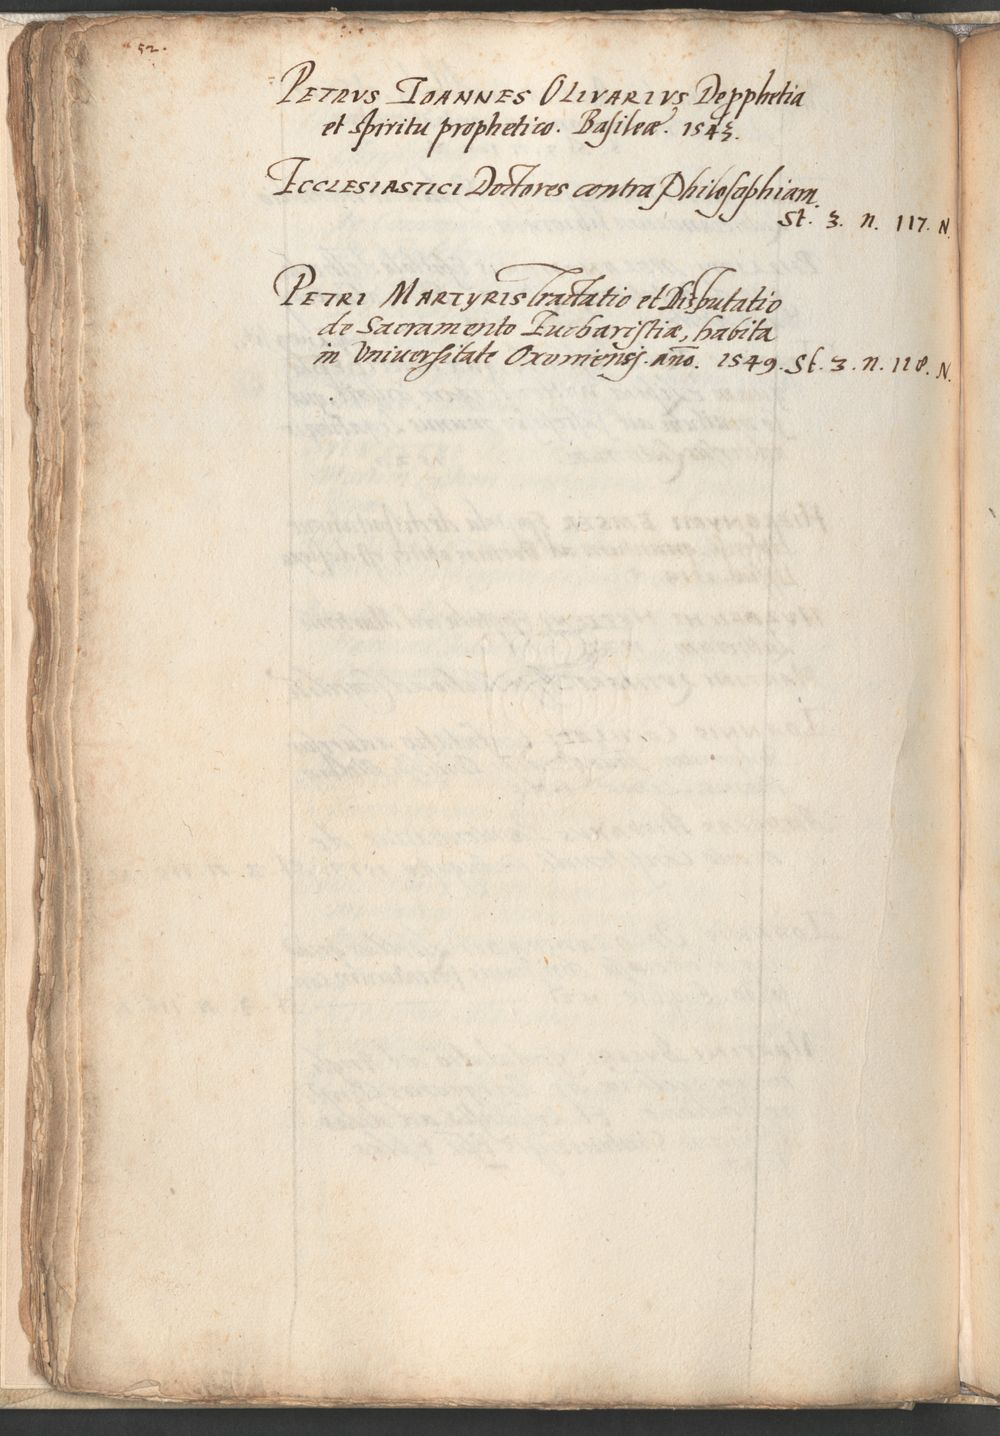 52.
PETRVS IOANNES OLIVARIVS De ꝓphetia
et spiritu prophetico. Basileæ. 1543.
ECCLESIASTICI Doctores contra Philosophiam.
St. 3. n. 117. N.
PETRI MARTYRIS tractatio et Disputatio
de Sacramento Eucharistiæ, habita
in Vniuersitate Oxoniensj. año. 1549. St. 3. n. 118. N.